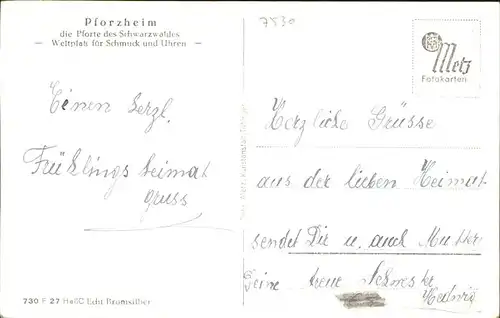 Pforzheim
die Pforte des Schwarzwaldes
— Weltplatz für Schmuck und Uhren —
7530
Metz
Fotokarten
Einen herzl.
Frühlings heimat
gruss
Herzliche Grüsse
aus der lieben Heimat
sendet Dir u. auch Mutter
Deine treue Schwester
Hedwig
730 F 27 HaßC Echt Bromsilber